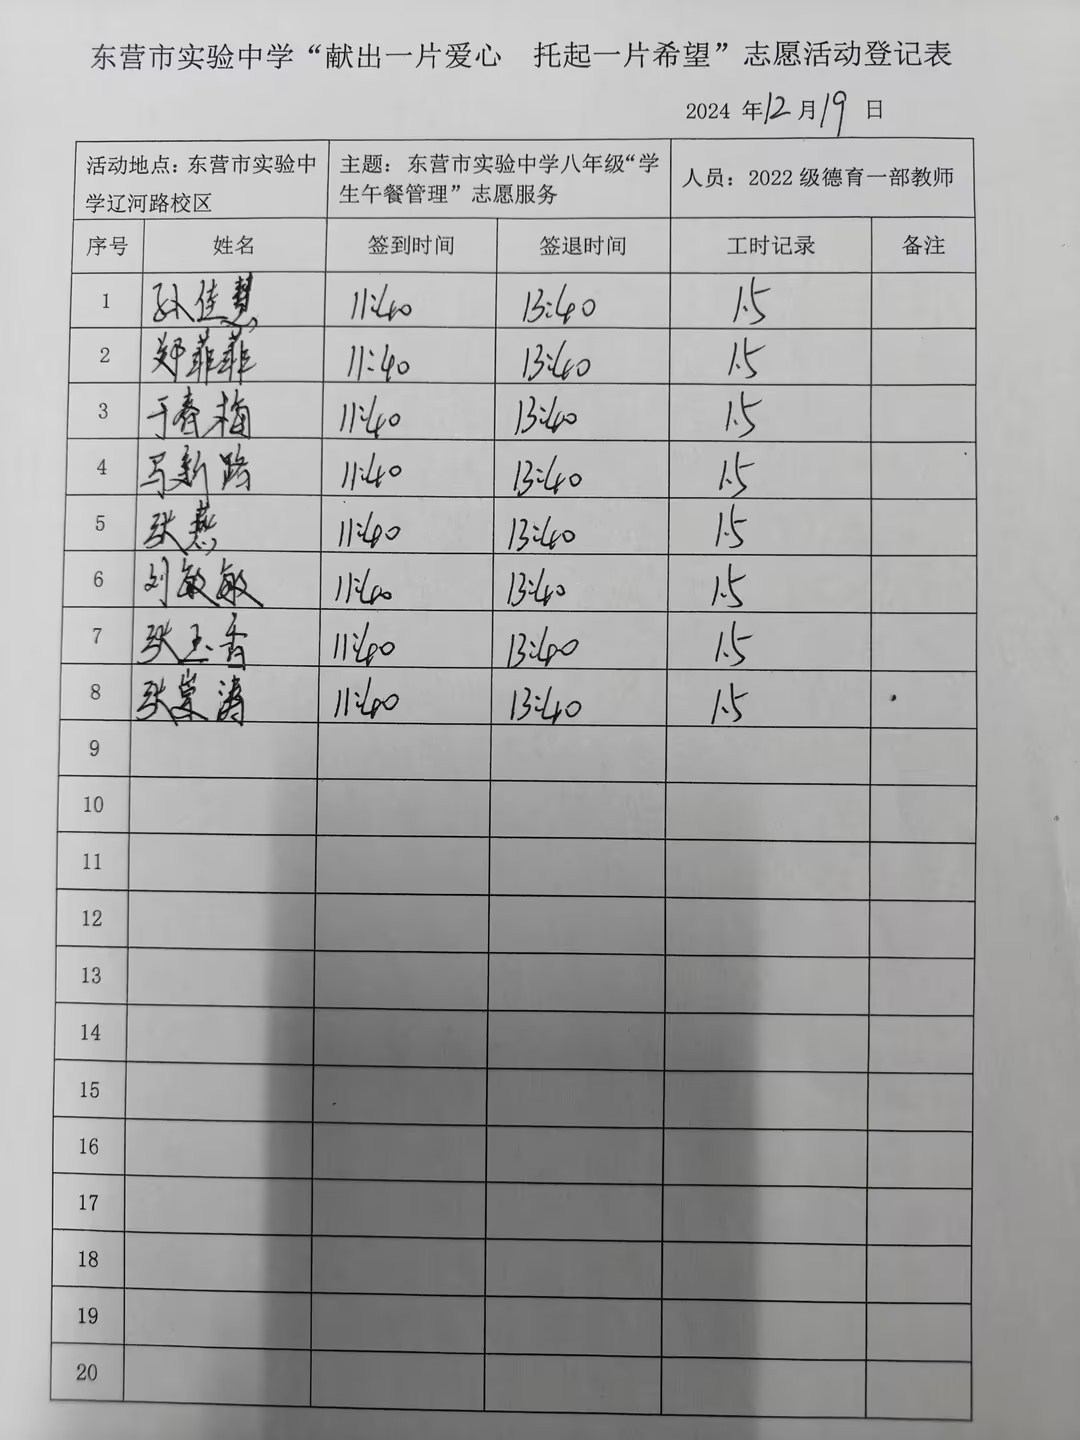 东营市实验中学“献出一片爱心 托起一片希望”志愿活动登记表
2024 年12月19日
活动地点：东营市实验中学辽河路校区 主题：东营市实验中学八年级“学生午餐管理”志愿服务 人员：2022 级德育一部教师
序号 姓名 签到时间 签退时间 工时记录 备注
1 孙佳慧 11:40 13:40 1.5
2 郑菲菲 11:40 13:40 1.5
3 于春梅 11:40 13:40 1.5
4 马新路 11:40 13:40 1.5
5 张慧 11:40 13:40 1.5
6 刘敏敏 11:40 13:40 1.5
7 张玉香 11:40 13:40 1.5
8 张 涛 11:40 13:40 1.5
9
10
11
12
13
14
15
16
17
18
19
20